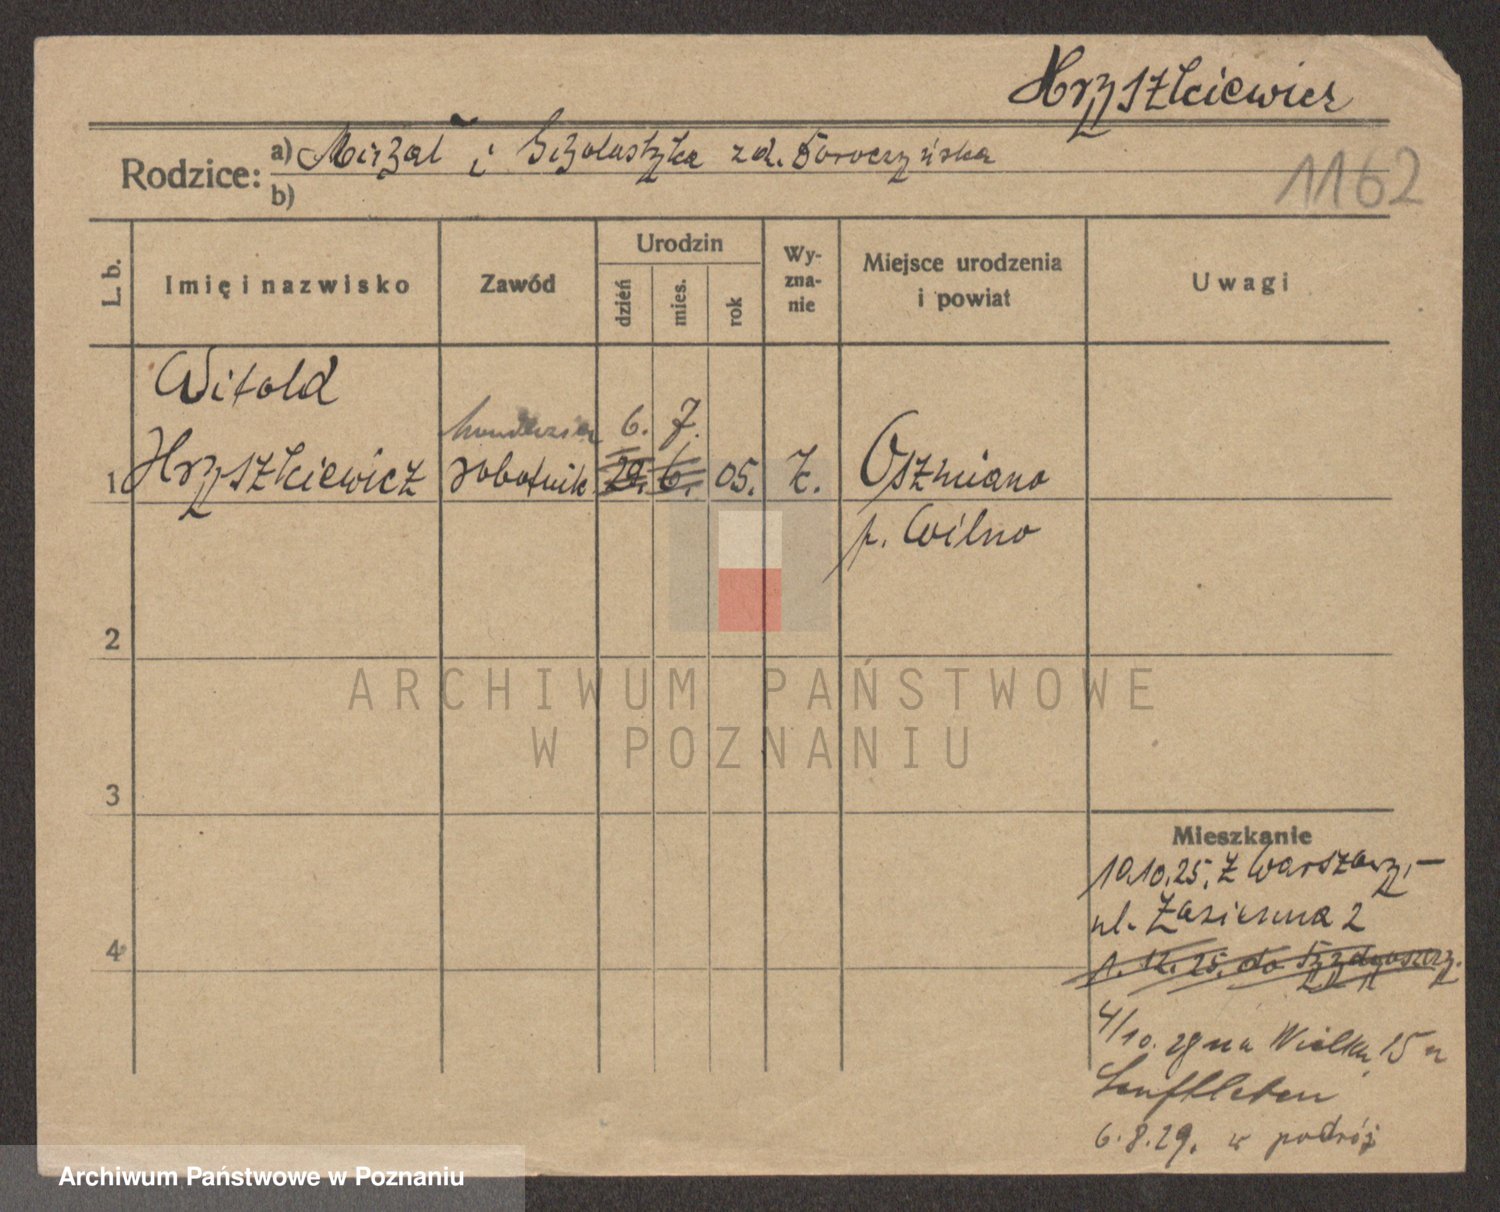 Hryszkiewicz
Rodzice: a) Michał i Scholastyka zd. Boroczyńska
b)
1162
L. b.
Imię i nazwisko
Zawód
Urodzin
dzień
mies.
rok
Wy-
zna-
nie
Miejsce urodzenia
i powiat
Uwagi
Witold
6. 7.
1 Hryszkiewicz robotnik 29. 6. 05. k. Oszmiana
p. Wilno
2
ARCHIWUM PAŃSTWOWE
W POZNANIU
3
Mieszkanie
10.10.25. z Warszawy,
ul. 2
4
1.12.25. do Bydgoszczy.
4/10. 28 na Wielka 15 u
6.8.29. w podróż
Archiwum Państwowe w Poznaniu